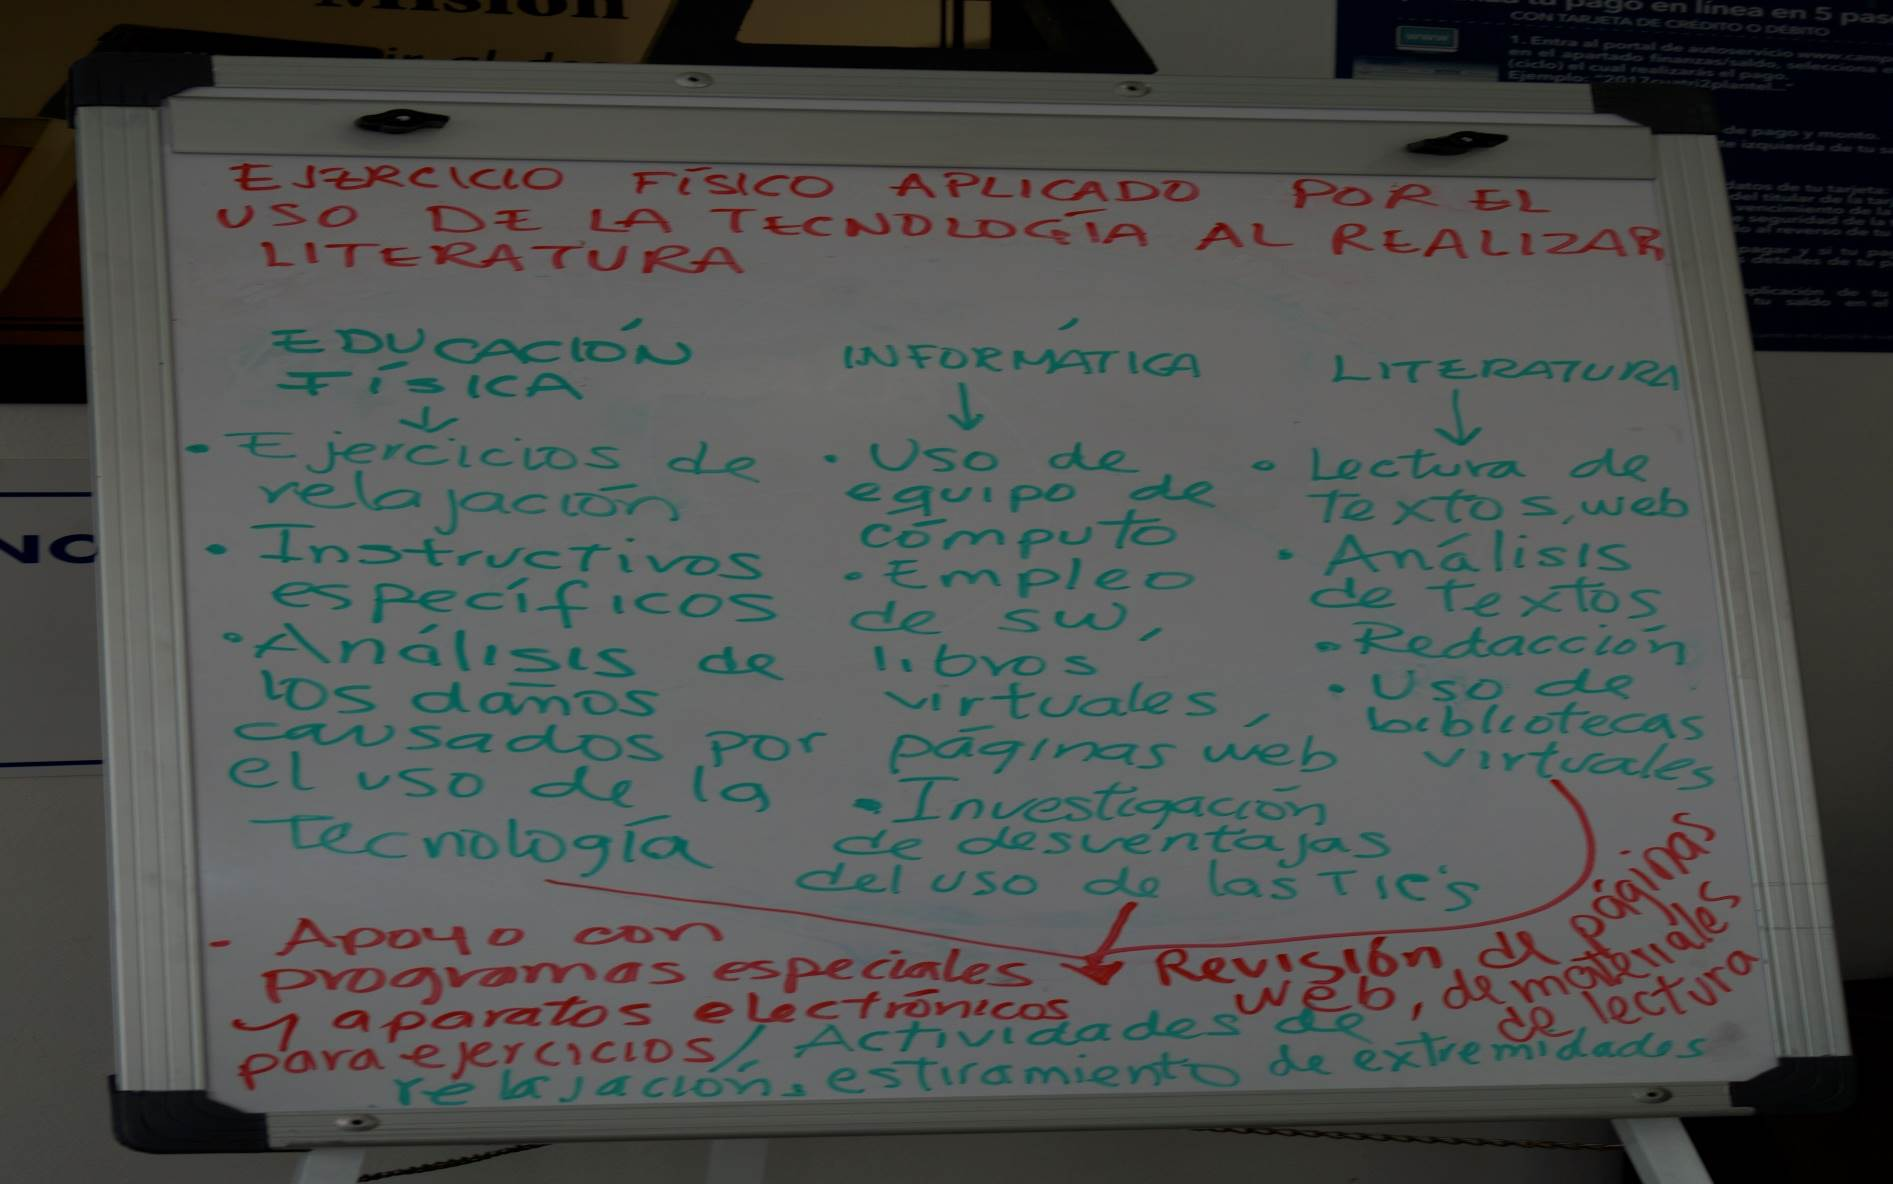 Misión
pago en línea en 5 pas
CON TARJETA DE CRÉDITO O DÉBITO
www
1. Entra al portal de autoservicio www.camp
en el apartado finanzas/saldo, selecciona e
(ciclo) el cual realizarás el pago.
de pago y monto.
izquierda de tu s
datos de tu tarjeta:
del titular de la tar
seguridad de la t
al reverso de tu
pagar y si tu pa
detalles de tu p
aplicación de tu
tu saldo en el
NC
EJERCICIO FÍSICO APLICADO POR EL
USO DE LA TECNOLOGÍA AL REALIZAR
LITERATURA
EDUCACIÓN
FÍSICA
↓
• Ejercicios de
relajación
• Instructivos
específicos
• Análisis de
los daños
causados por
el uso de la
tecnología
INFORMÁTICA
↓
• Uso de
equipo de
cómputo
• Empleo
de SW,
libros
virtuales,
páginas web
• Investigación
de desventajas
del uso de las TIC's
LITERATURA
↓
• Lectura de
textos, web
• Análisis
de textos
• Redacción
• Uso de
bibliotecas
virtuales
• Apoyo con
programas especiales
y aparatos electrónicos
para ejercicios/
Revisión de páginas
web, de materiales
de lectura
Actividades de
relajación, estiramiento de extremidades